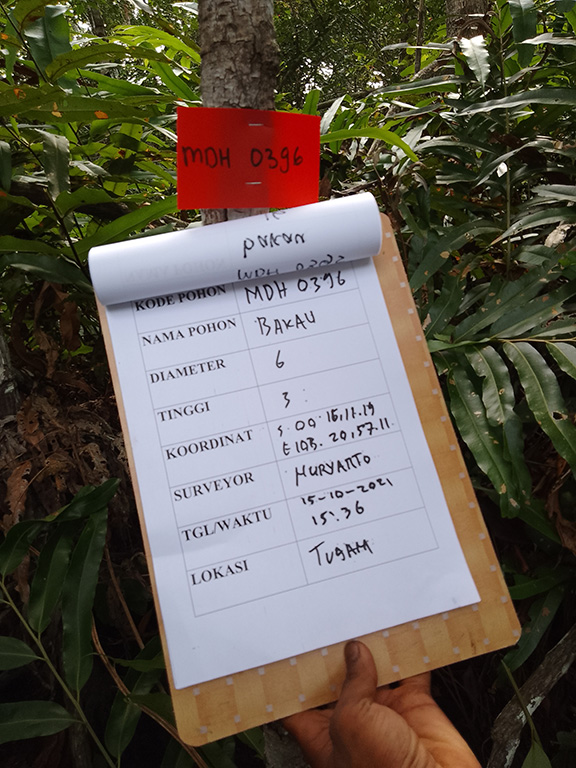 MDH 0396
KODE POHON MDH 0396
NAMA POHON BAKAU
DIAMETER 6
TINGGI 3
KOORDINAT S.00.16.11.19
E103.20.57.11.
SURVEYOR MURYANTO
TGL/WAKTU 15-10-2021
15:36
LOKASI